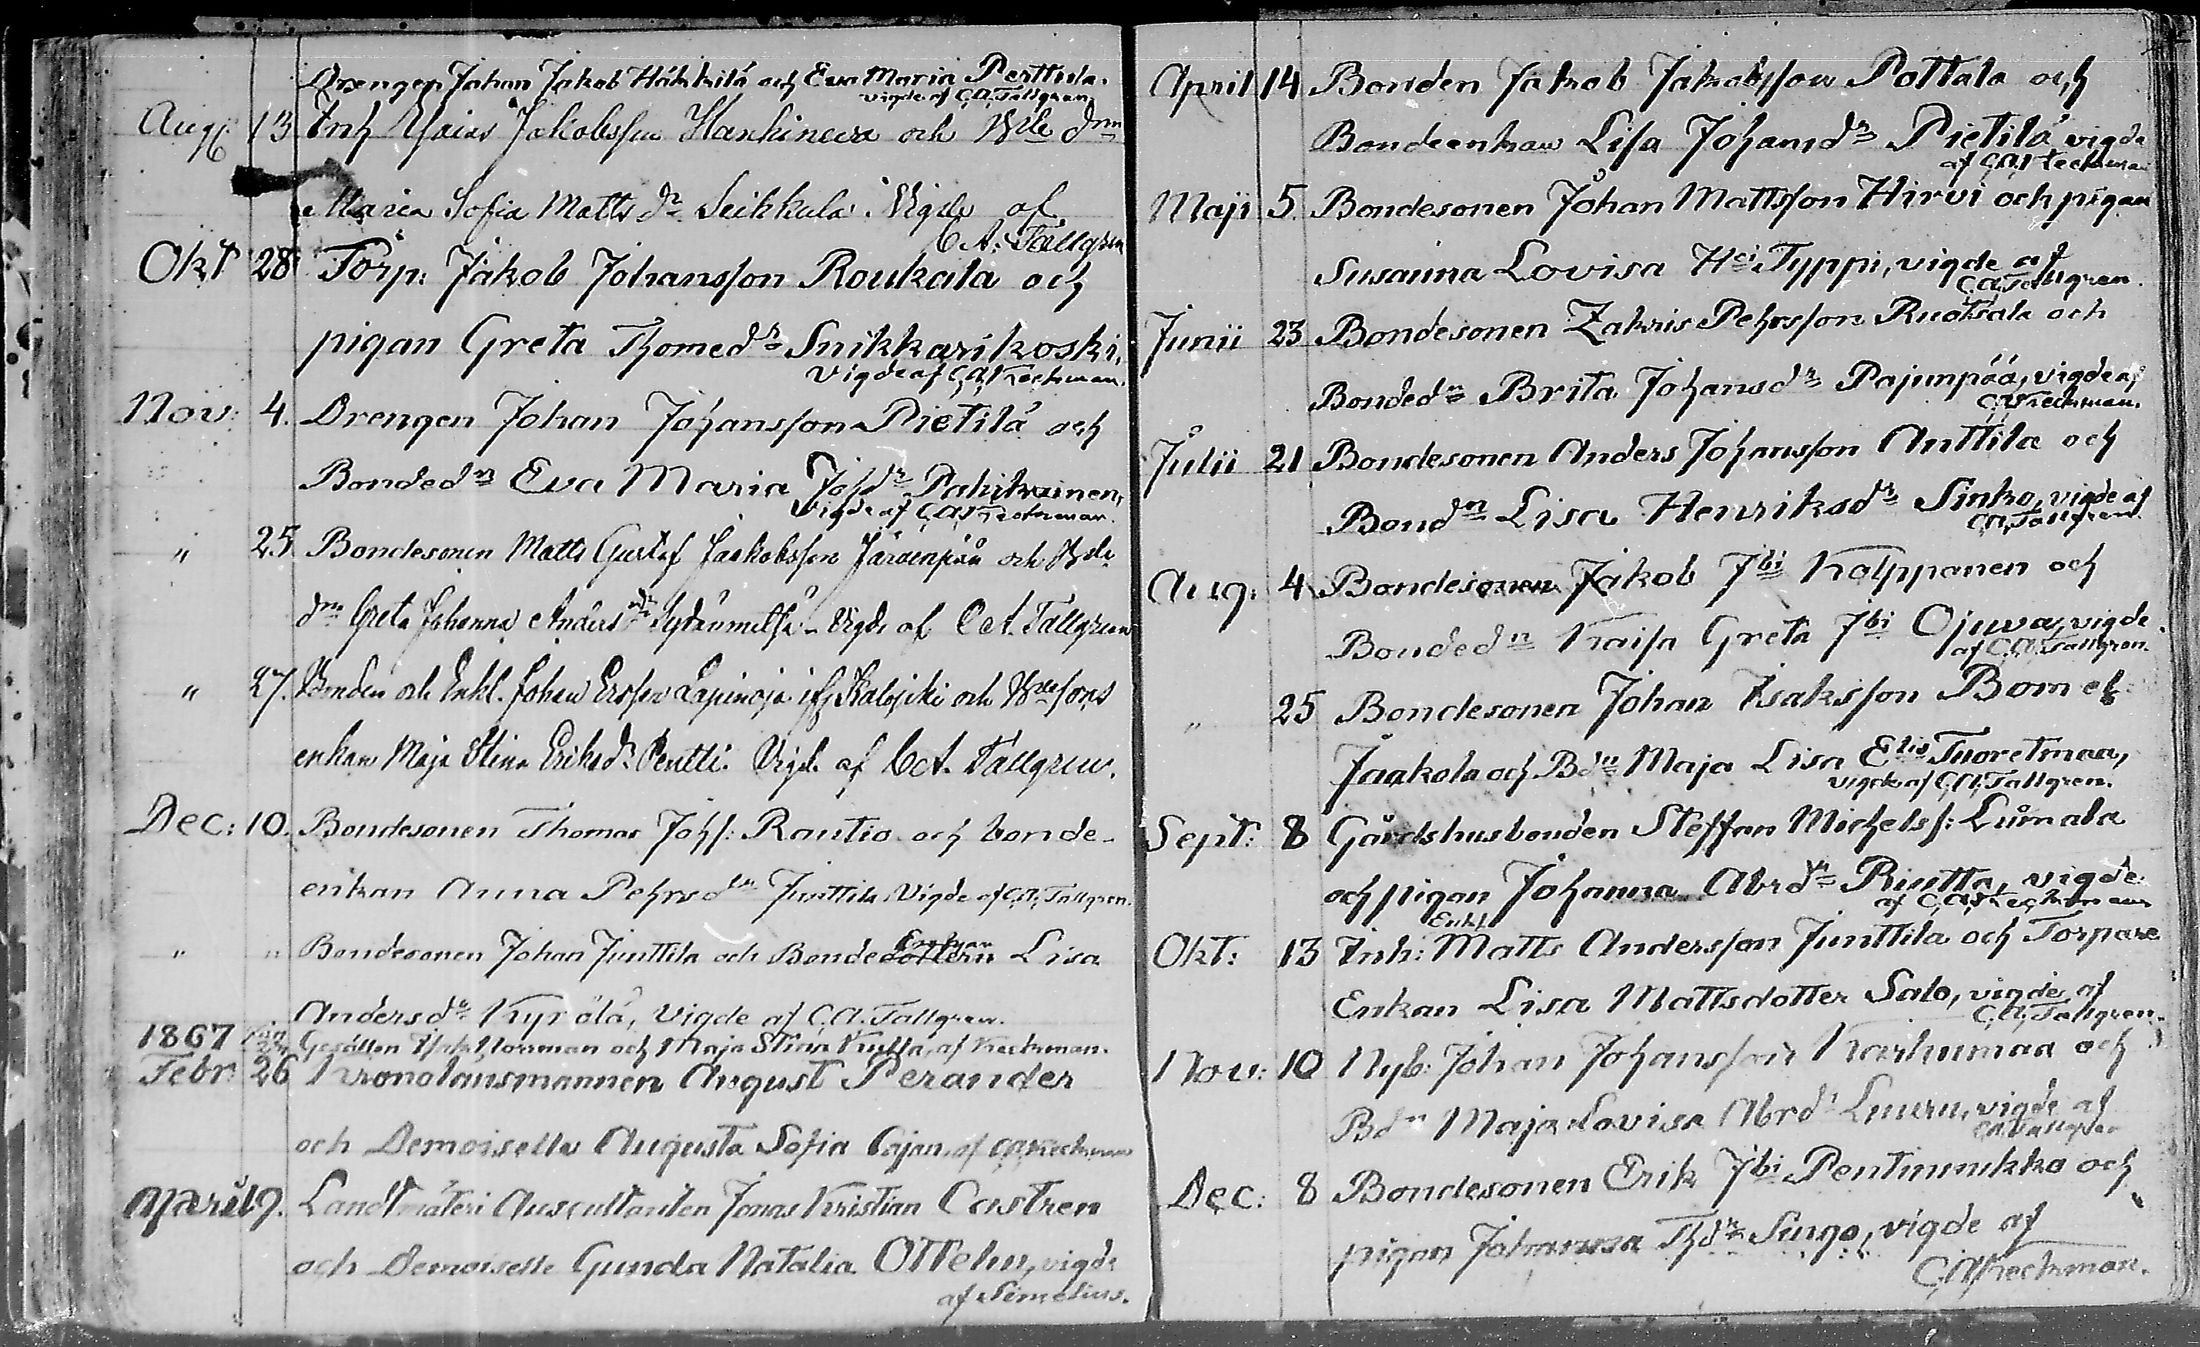 Drengen Johan Jakob Häkkilä och Eva Maria Perttula.
vigde af C.A. Tallgren
Aug. 13 Inh Esaias Jakobsson Hankineva och Bde dn
Maria Sofia Matts dr Leikkula. Vigde af
C. A. Tallgren
Okt 28 Torp: Jakob Johansson Roukala och
pigan Greta Thomed:r Snikkarikoski,
Vigde af C.A. Keckman.
Nov: 4. Drengen Johan Johansson Pietilä och
Bondedn Eva Maria Johdr Pahikainen,
Vigde af C.A. Keckman.
" 25 Bondesonen Matts Gustaf Jaakobsson Järvenpää och Bde
dn Greta Johanna Anders dr Sydänmetsä - Vigde af C. A. Tallgren
" 27. Bonden och Enkl. Johan Ersson Lapinoja ifr Kalajoki och Bdesons
enkan Maja Stina Eriksdr Pentti. Vigde af C. A. Tallgren.
Dec: 10. Bondesonen Thomas Johs: Rautio och bonde-
enkan Anna Pehrsdr Junttila, Vigde af C.A. Tallgren.
" " Bondesonen Johan Junttila och Bondedottern Enkan Lisa
Andersdr Kyrölä, Vigde af C.A. Tallgren.
1867 Gesällen Norrman och Maja Stina Kulla, af Keckman.
Febr: 26 Kronolänsmannen August Perander
och Demoiselle Augusta Sofia Cajan, af C.A. Keckman
April 9. Landtmäteri Auscultanten Jonas Kristian Castren
och Demoiselle Gunda Natalia Ottelin, vigde
af Simelius.
April 14 Bonden Jakob Jakobsson Pottala och
Bondeenkan Lisa Johansdr Pietilä vigde
af C.A. Keckman
Maji 5. Bondesonen Johan Mattsson Hirvi och pigan
Susanna Lovisa Hci Typpi, vigde af
C.A. Tallgren.
Junii 23 Bondesonen Zakris Pehrsson Ruotsala och
Bondedn Brita Johansdr Pajunpää, vigde af
C.A. Keckman.
Julii 21 Bondesonen Anders Johansson Anttila och
Bonddn Lisa Henriksdr Sinko, vigde af
C.A. Tallgren
Aug: 4 Bondesonen Jakob Jbi Kolppanen och
Bondedn Kaisa Greta Jbi Ojuva, vigde
af C.A. Tallgren.
" 25 Bondesonen Johan Isaksson Bom el.
Jaakola och Bdn Maja Lisa Elis Tuoretmaa,
vigde af C.A. Tallgren.
Sept: 8 Gårdshusbonden Steffan Michelss: Lumala
och pigan Johanna Abrdr Rintta, vigde
af C.A. Keckman
Okt: 13 Inh: Enkl Matts Andersson Junttila och Torpare
Enkan Lisa Mattsdotter Salo, vigde af
C.A. Tallgren.
Nov: 10 Nyb: Johan Johansson Karhumaa och
Bdn Maja Lovisa Abrdr vigde af
C.A. Tallgren
Dec: 8 Bondesonen Erik Jbi Pentinmikko och
pigan Johanna Thdr Singo, vigde af
C.A. Keckman.